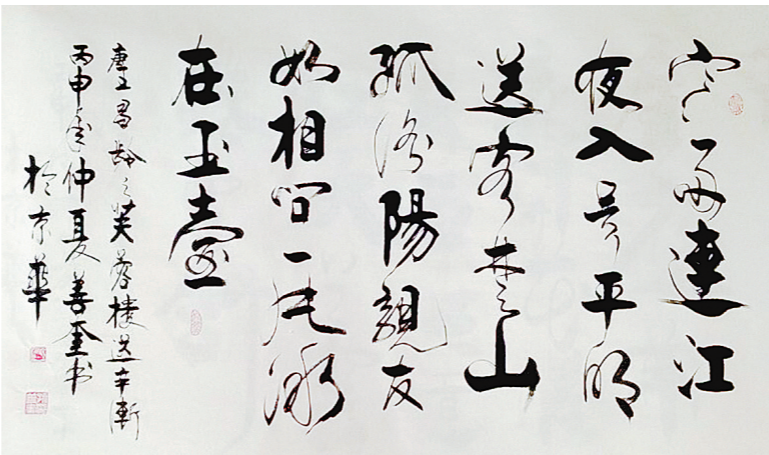 寒雨連江
夜入吴平明
送客楚山
孤洛陽親友
如相问一片冰
在玉壺
唐王昌齡之芙蓉樓送辛漸
丙申年仲夏善奎书
於京華